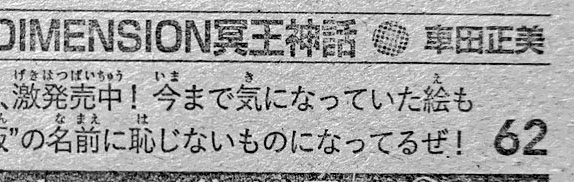 DIMENSION冥王神話 車田正美
、激発売中！今まで気になっていた絵も
”の名前に恥じないものになってるぜ！
62